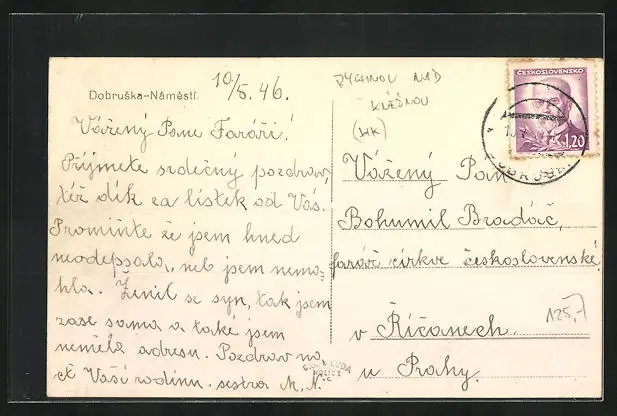 10/5. 46.
Dobruška–Náměstí.
Vážený Pane Faráři!
Příjmete srdečný pozdrav,
též dík za lístek od Vás.
Prominťe že jsem hned
neodepsala, neb jsem nemo-
hla. Ženil se syn, tak jsem
zase sama a take jsem
neměla adresu. Pozdrav na
cť Vaši rodinu. sestra M. N.
RYCHNOV NAD
KNĚŽNOU
(HK)
ČESKOSLOVENSKO
1,20
Vážený Pan
Bohumil Bradáč,
farář církve československé
v Říčanech
u Prahy.
125,-